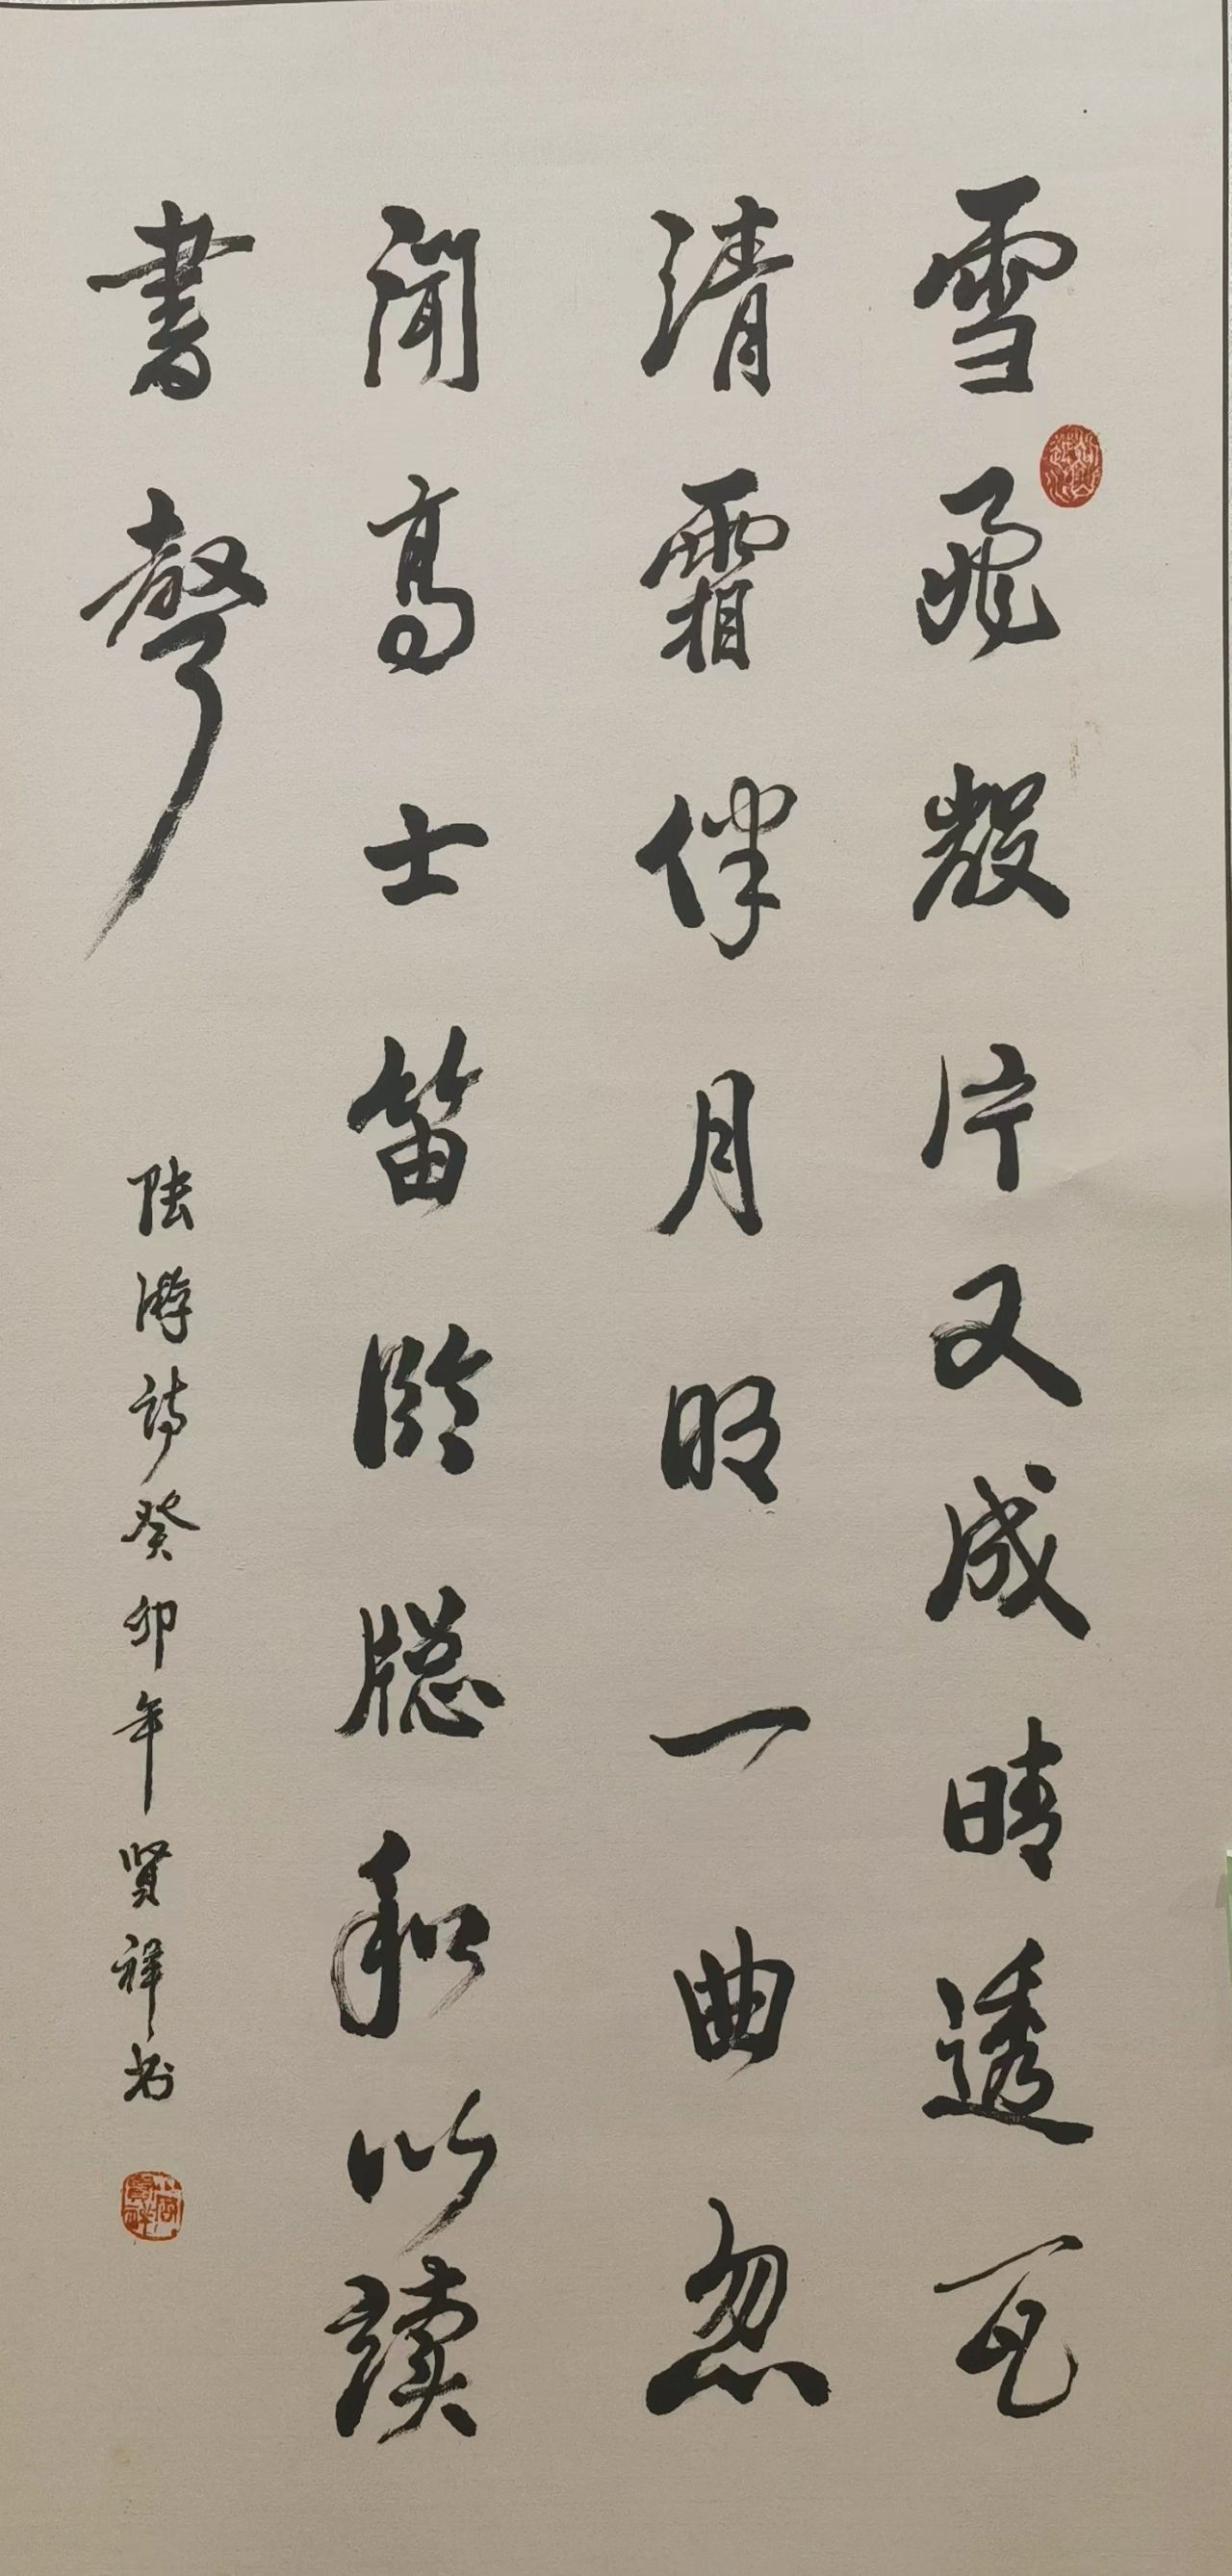 雪飛數片又成晴透瓦
清霜伴月明一曲忽
聞高士笛臨牕和以讀
書聲
陸游詩癸卯年賢祥书